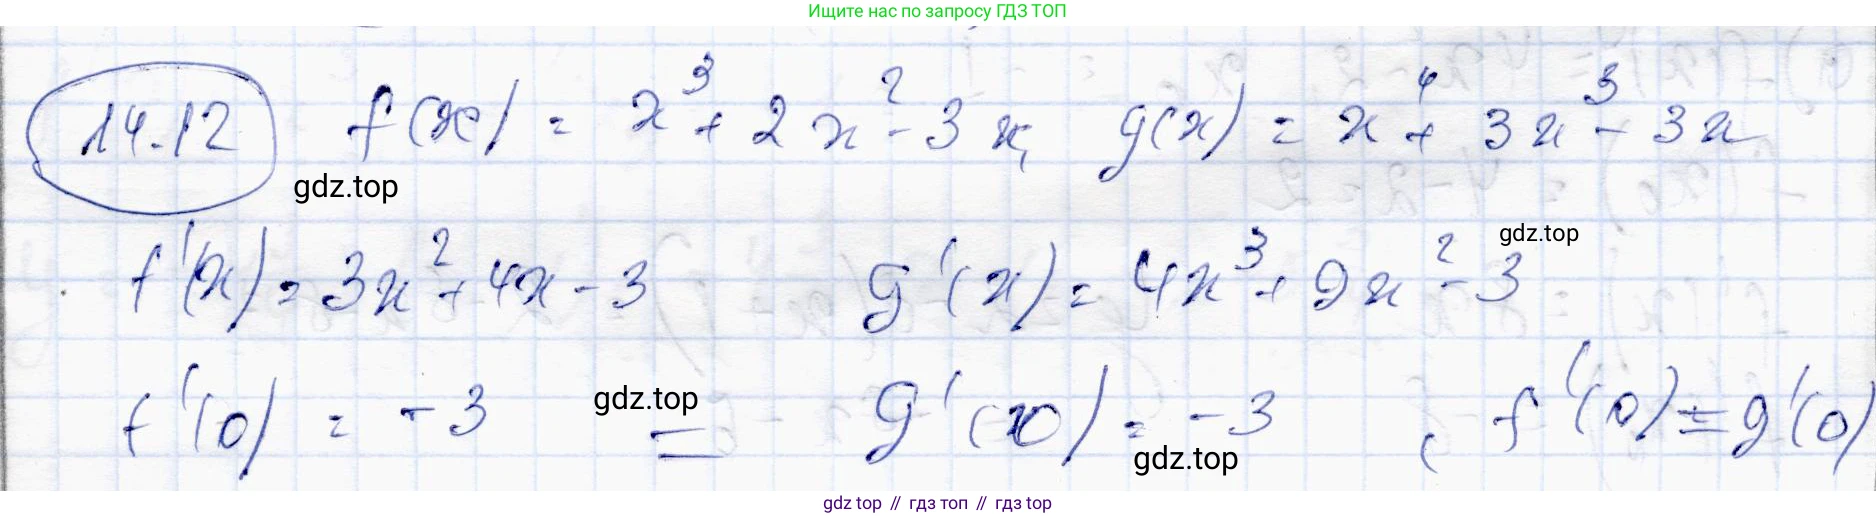 Ищите нас по запросу ГДЗ ТОП
14.12 f(x) = x³ + 2x² - 3x, g(x) = x⁴ + 3x³ - 3x
gdz.top
gdz.top
f'(x) = 3x² + 4x - 3 g'(x) = 4x³ + 9x² - 3
f'(0) = -3 = g'(x0) = -3 , f'(0) = g'(0)
gdz.top
gdz.top
gdz top // гдз топ // гдз top